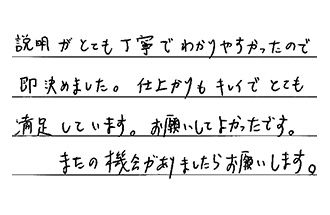 説明がとても丁寧でわかりやすかったので
即決めました。仕上がりもキレイでとても
満足しています。お願いしてよかったです。
またの機会がありましたらお願いします。